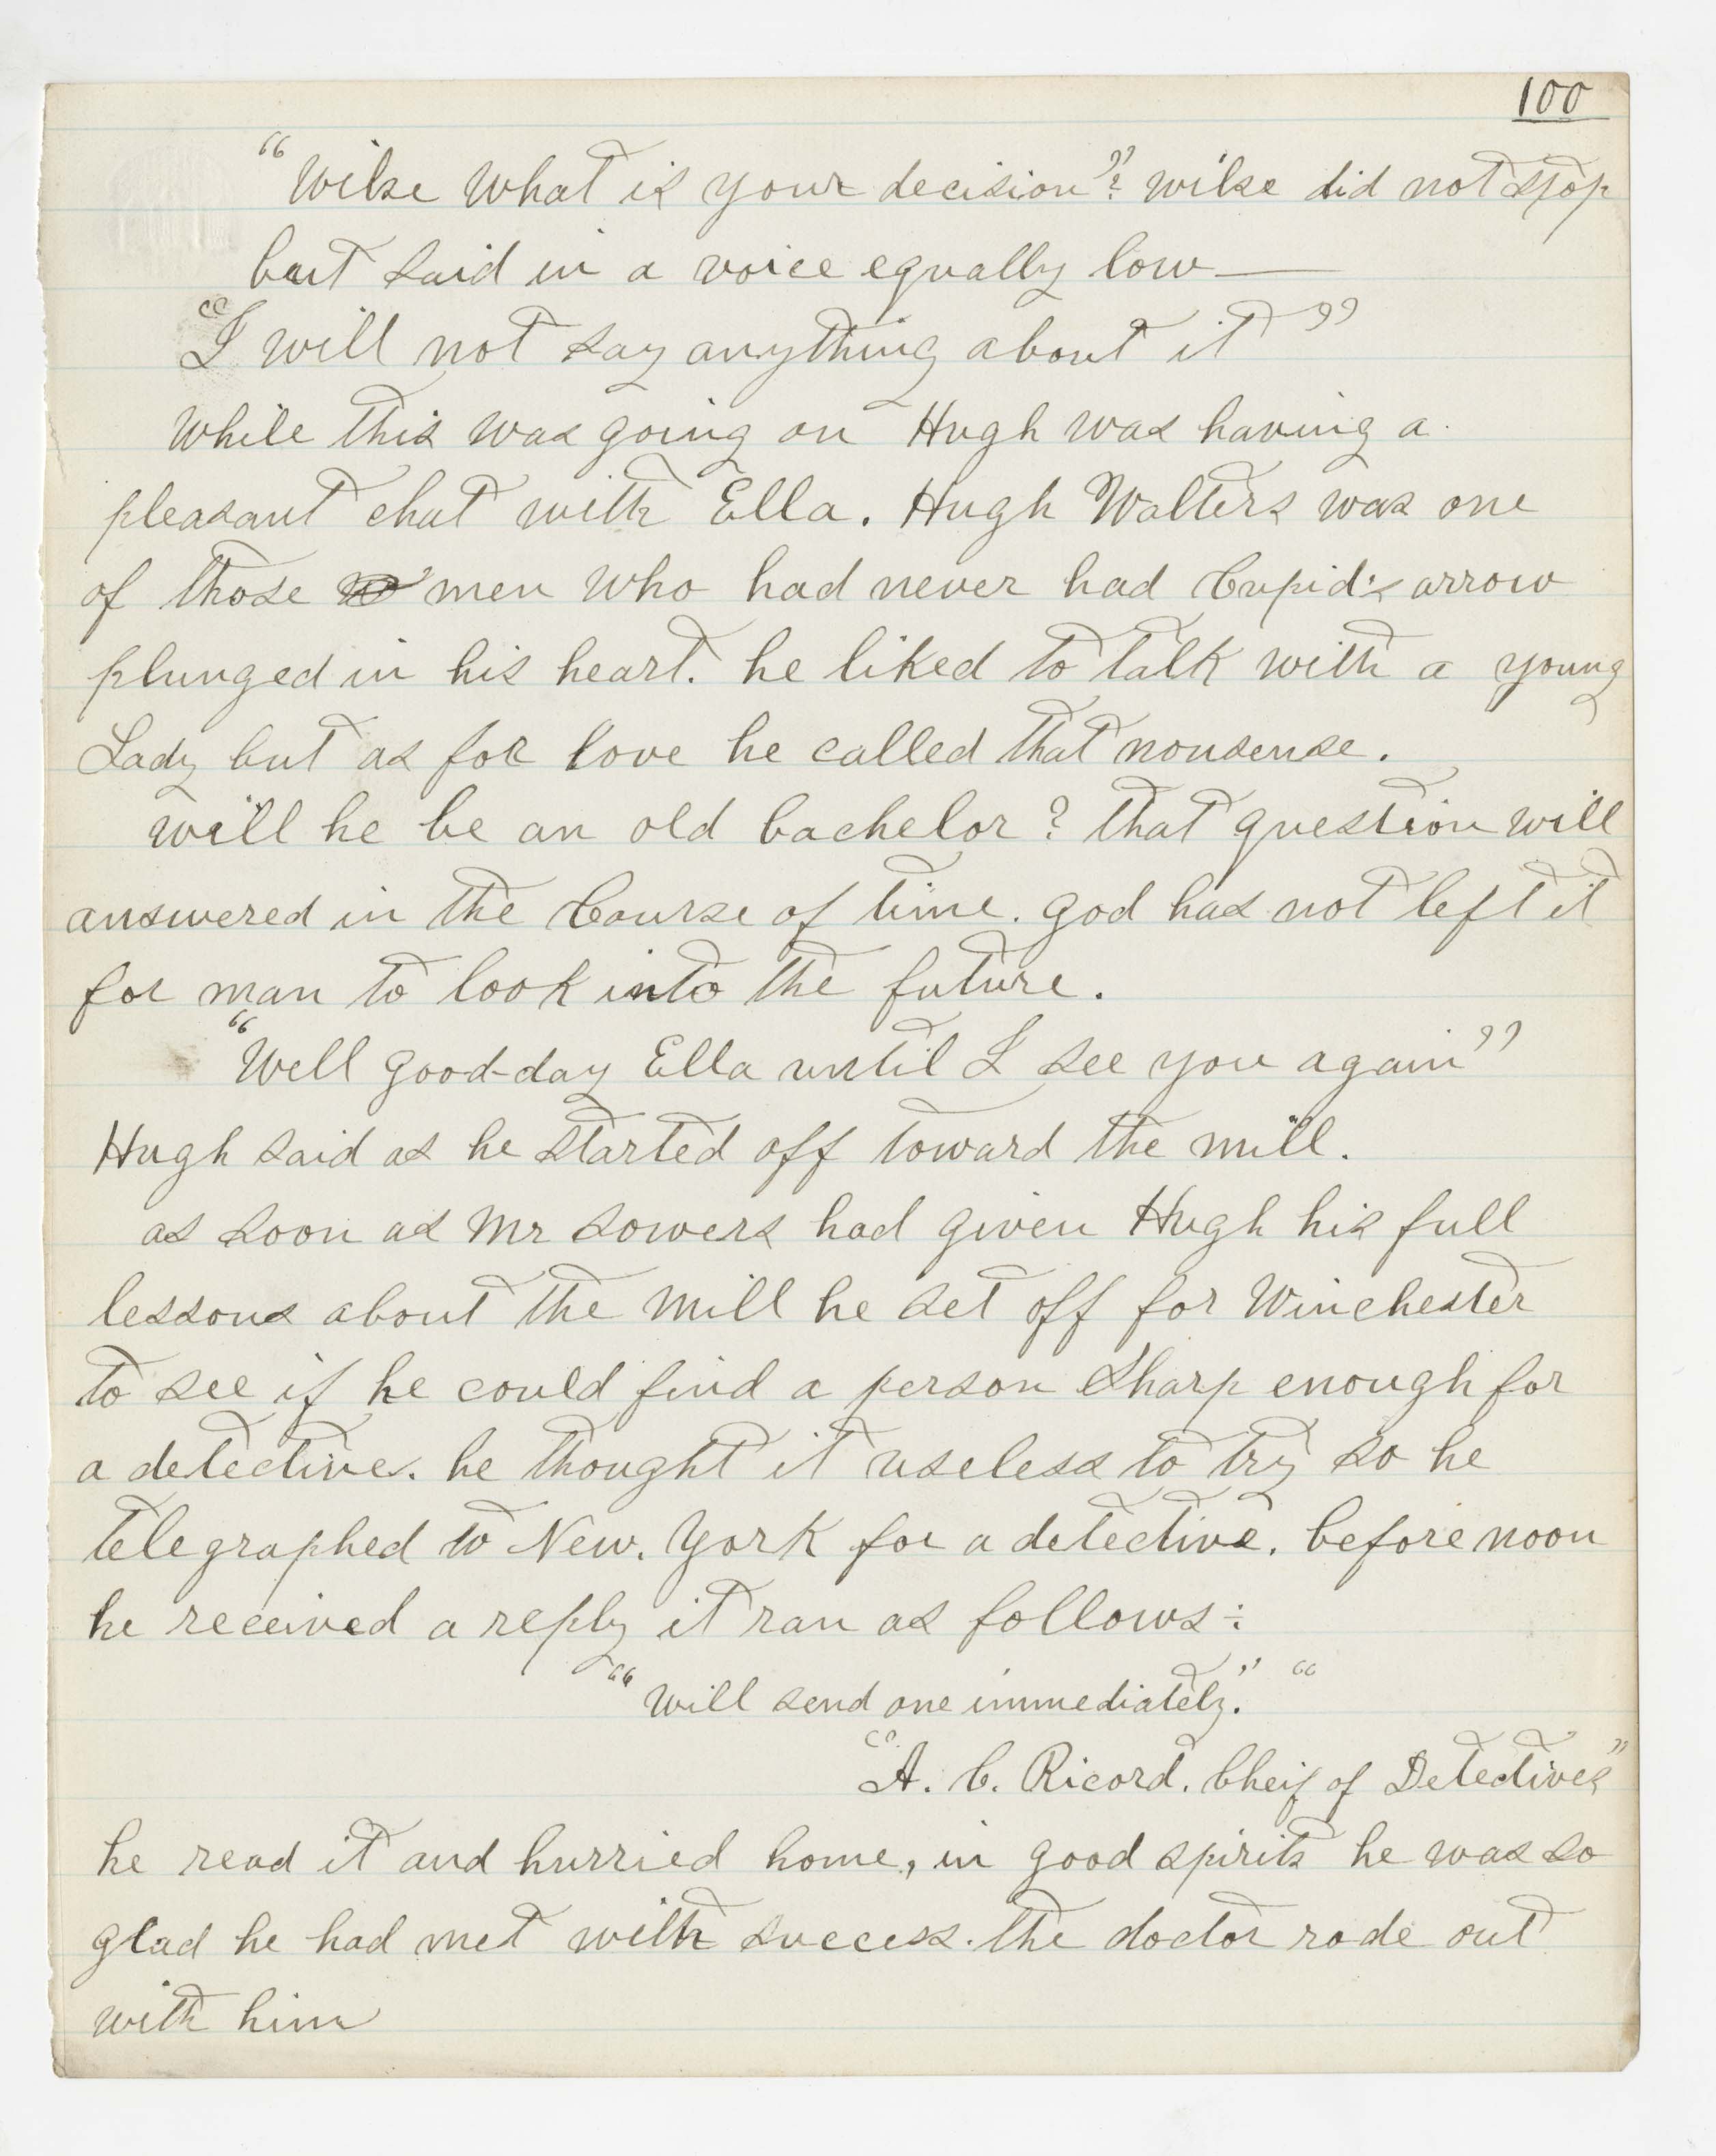 100
"Wilse What is your decision"? Wilse did not stop
but said in a voice equally low—
"I will not say anything about it"
While this was going on Hugh was having a
pleasant chat with Ella. Hugh Walters was one
of those men who had never had Cupid's arrow
plunged in his heart. he liked to talk with a young
Lady but as for love he called that nonsense.
Will he be an old bachelor? that question will
answered in the Course of time. God has not left it
for man to look into the future.
"Well good-day Ella until I see you again"
Hugh said as he started off toward the mill.
as soon as Mr Sowers had given Hugh his full
lessons about the Mill he set off for Winchester
to see if he could find a person sharp enough for
a detective. he thought it useless to try so he
telegraphed to New. York for a detective. before noon
he received a reply it ran as follows:
"Will send one immediately." "
"A. C. Ricord. Cheif of Detectives"
he read it and hurried home, in good spirits he was so
glad he had met with success. the doctor rode out
with him